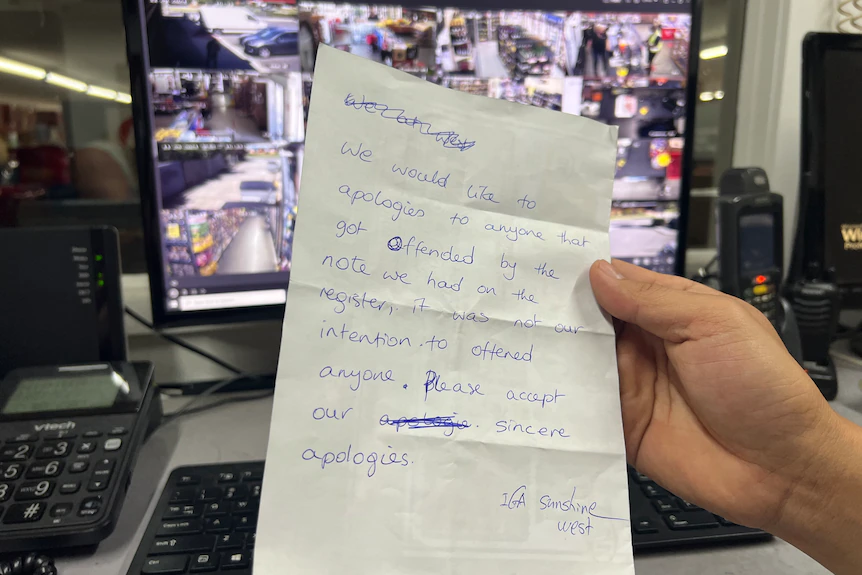 We would like to
apologies to anyone that
got Offended by the
note we had on the
register, it was not our
intention. to offered
anyone. Please accept
our apologie. sincere
apologies.
IGA Sunshine
west
vtech
2 3
5 6
8 9
#